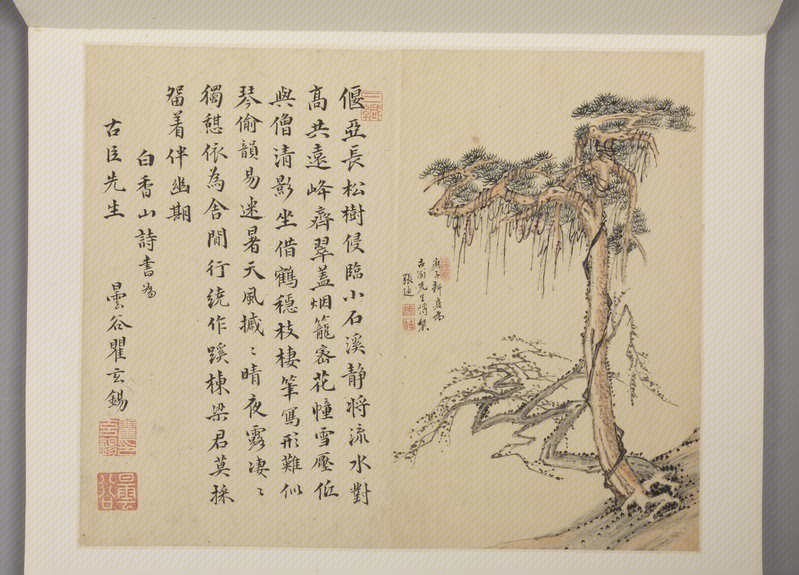 偃亞長松樹侵臨小石溪靜將流水對
高共遠峰齊翠蓋烟籠密花幢雪壓低
與僧清影坐借鶴穩枝棲筆寫形難似
琴偷韻易迷暑天風槭〻晴夜露凄〻
獨憇依為舍閒行繞作蹊棟梁君莫採
留着伴幽期
白香山詩書為
古臣先生
曇谷瞿玄錫
曇谷
庚子新夏為
先生博粲
張迪